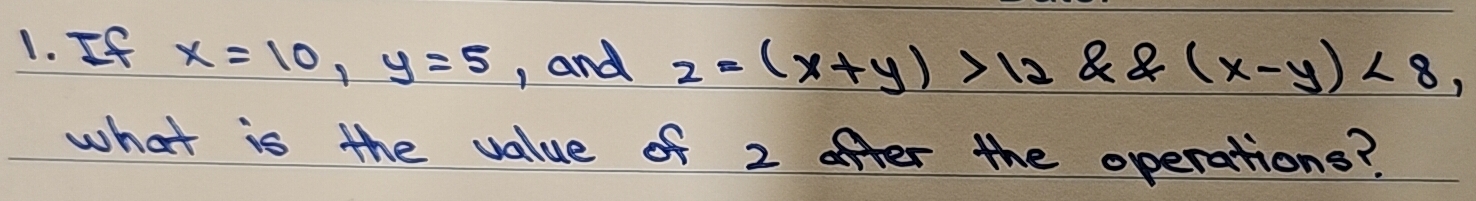 1. If x = 10, y = 5, and z = (x+y) > 12 && (x-y) < 8,
what is the value of z after the operations?